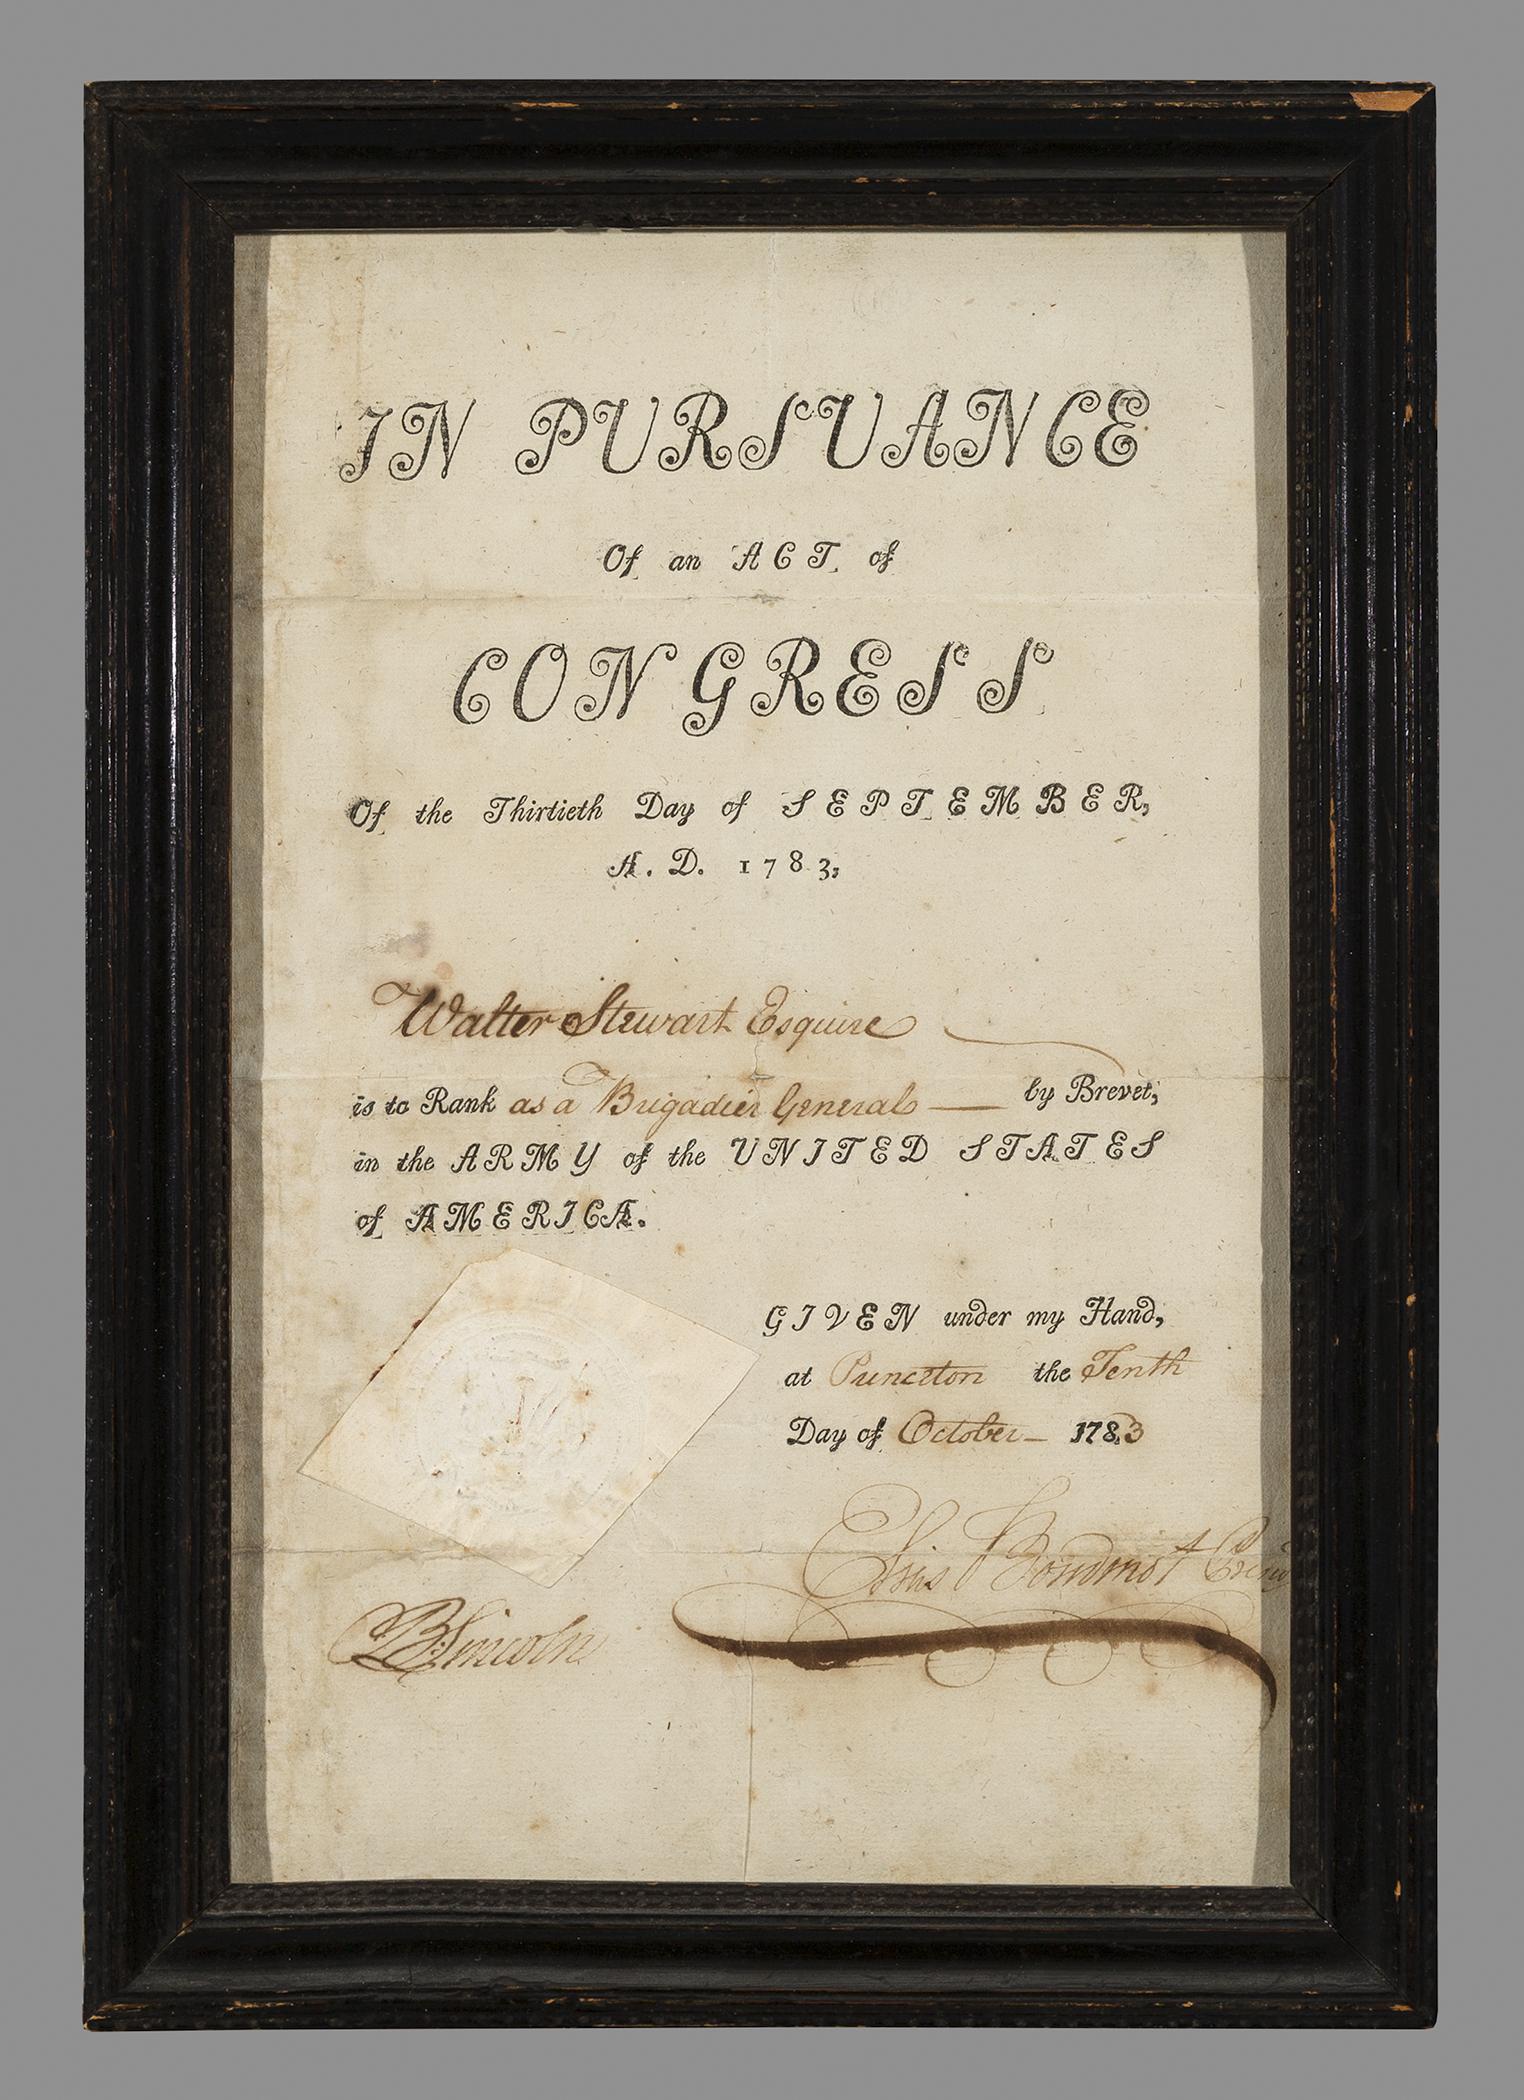 IN PURSUANCE
Of an ACT of
CONGRESS
Of the Thirtieth Day of SEPTEMBER,
A. D. 1783,
Walter Stewart Esquire
is to Rank as a Brigadier General — by Brevet,
in the ARMY of the UNITED STATES
of AMERICA.
GIVEN under my Hand,
at Princeton the Tenth
Day of October — 1783
Elias Boudinot
B. Lincoln